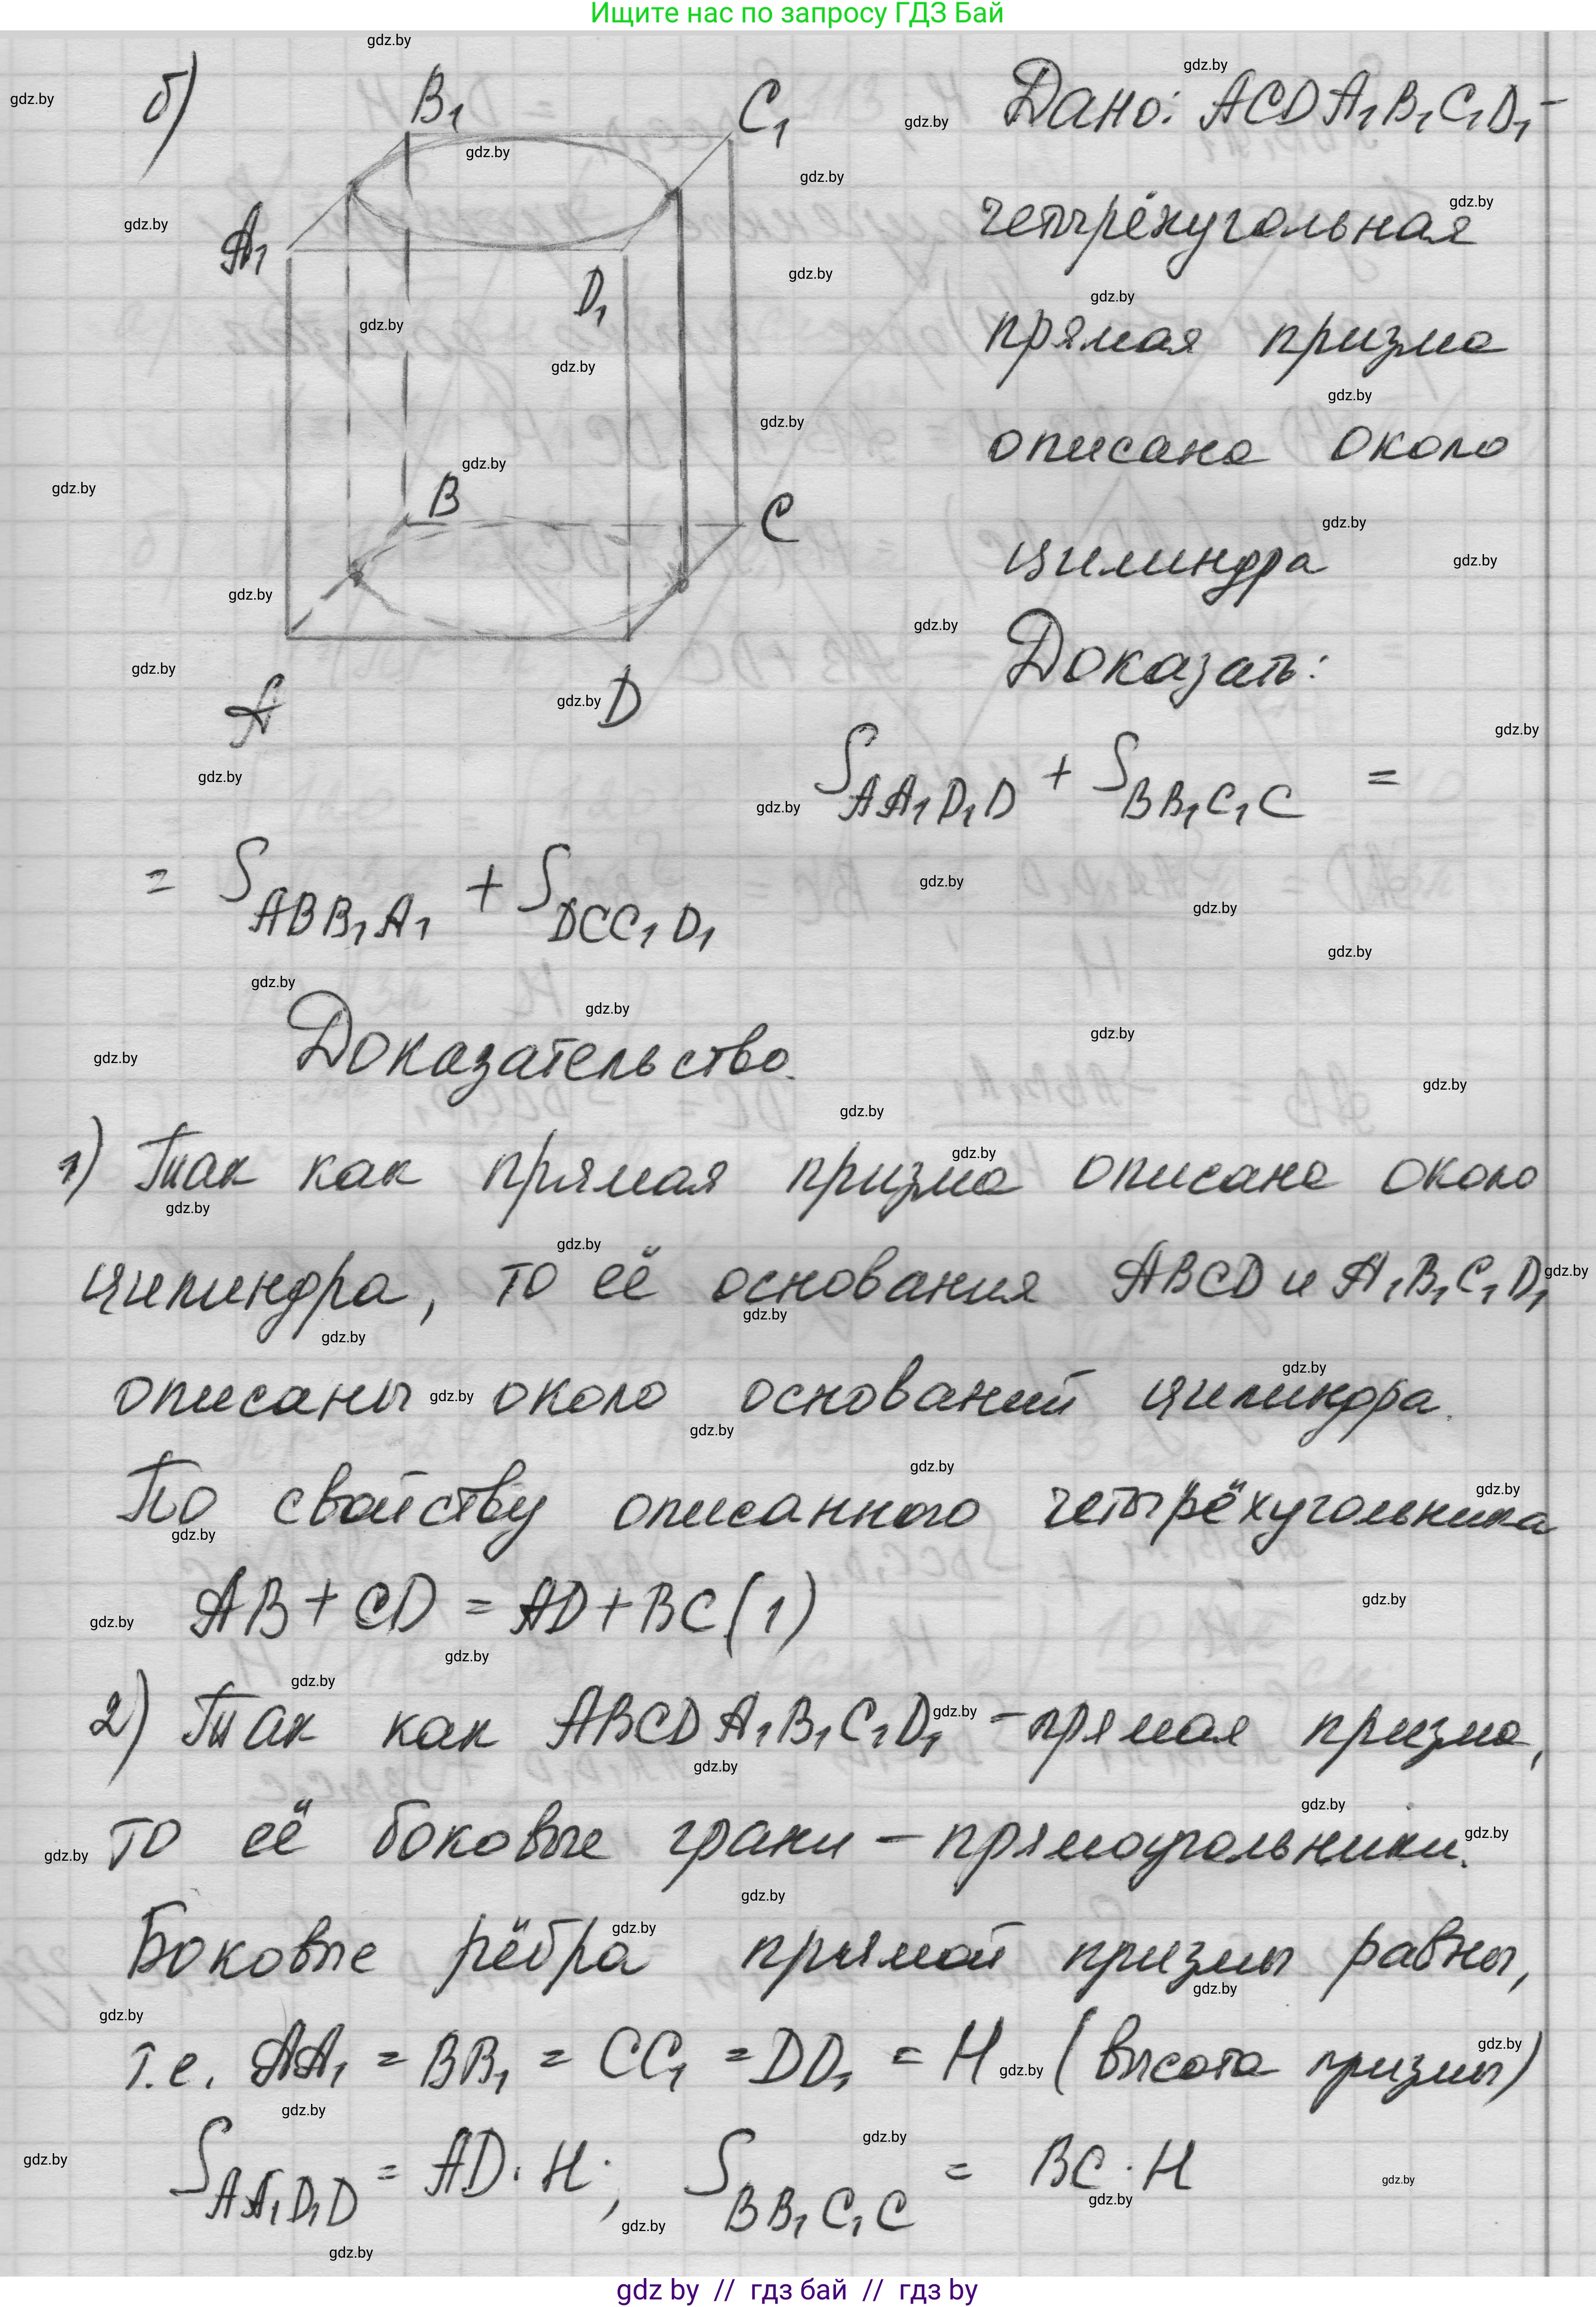 Ищите нас по запросу ГДЗ Бай
б)
B₁
C₁
A₁
D₁
B
C
A
D
Дано: ACDA₁B₁C₁D₁ –
четырёхугольная
прямая призма
описана около
цилиндра
Доказать:
S_AA₁D₁D + S_BB₁C₁C =
= S_ABB₁A₁ + S_DCC₁D₁
Доказательство.
1) Так как прямая призма описана около
цилиндра, то её основания ABCD и A₁B₁C₁D₁
описаны около оснований цилиндра.
По свойству описанного четырёхугольника
AB + CD = AD + BC (1)
2) Так как ABCDA₁B₁C₁D₁ – прямая призма,
то её боковые грани – прямоугольники.
Боковые рёбра прямой призмы равны,
т.е. AA₁ = BB₁ = CC₁ = DD₁ = H (высота призмы)
S_AA₁D₁D = AD · H; S_BB₁C₁C = BC · H
gdz by // гдз бай // гдз by